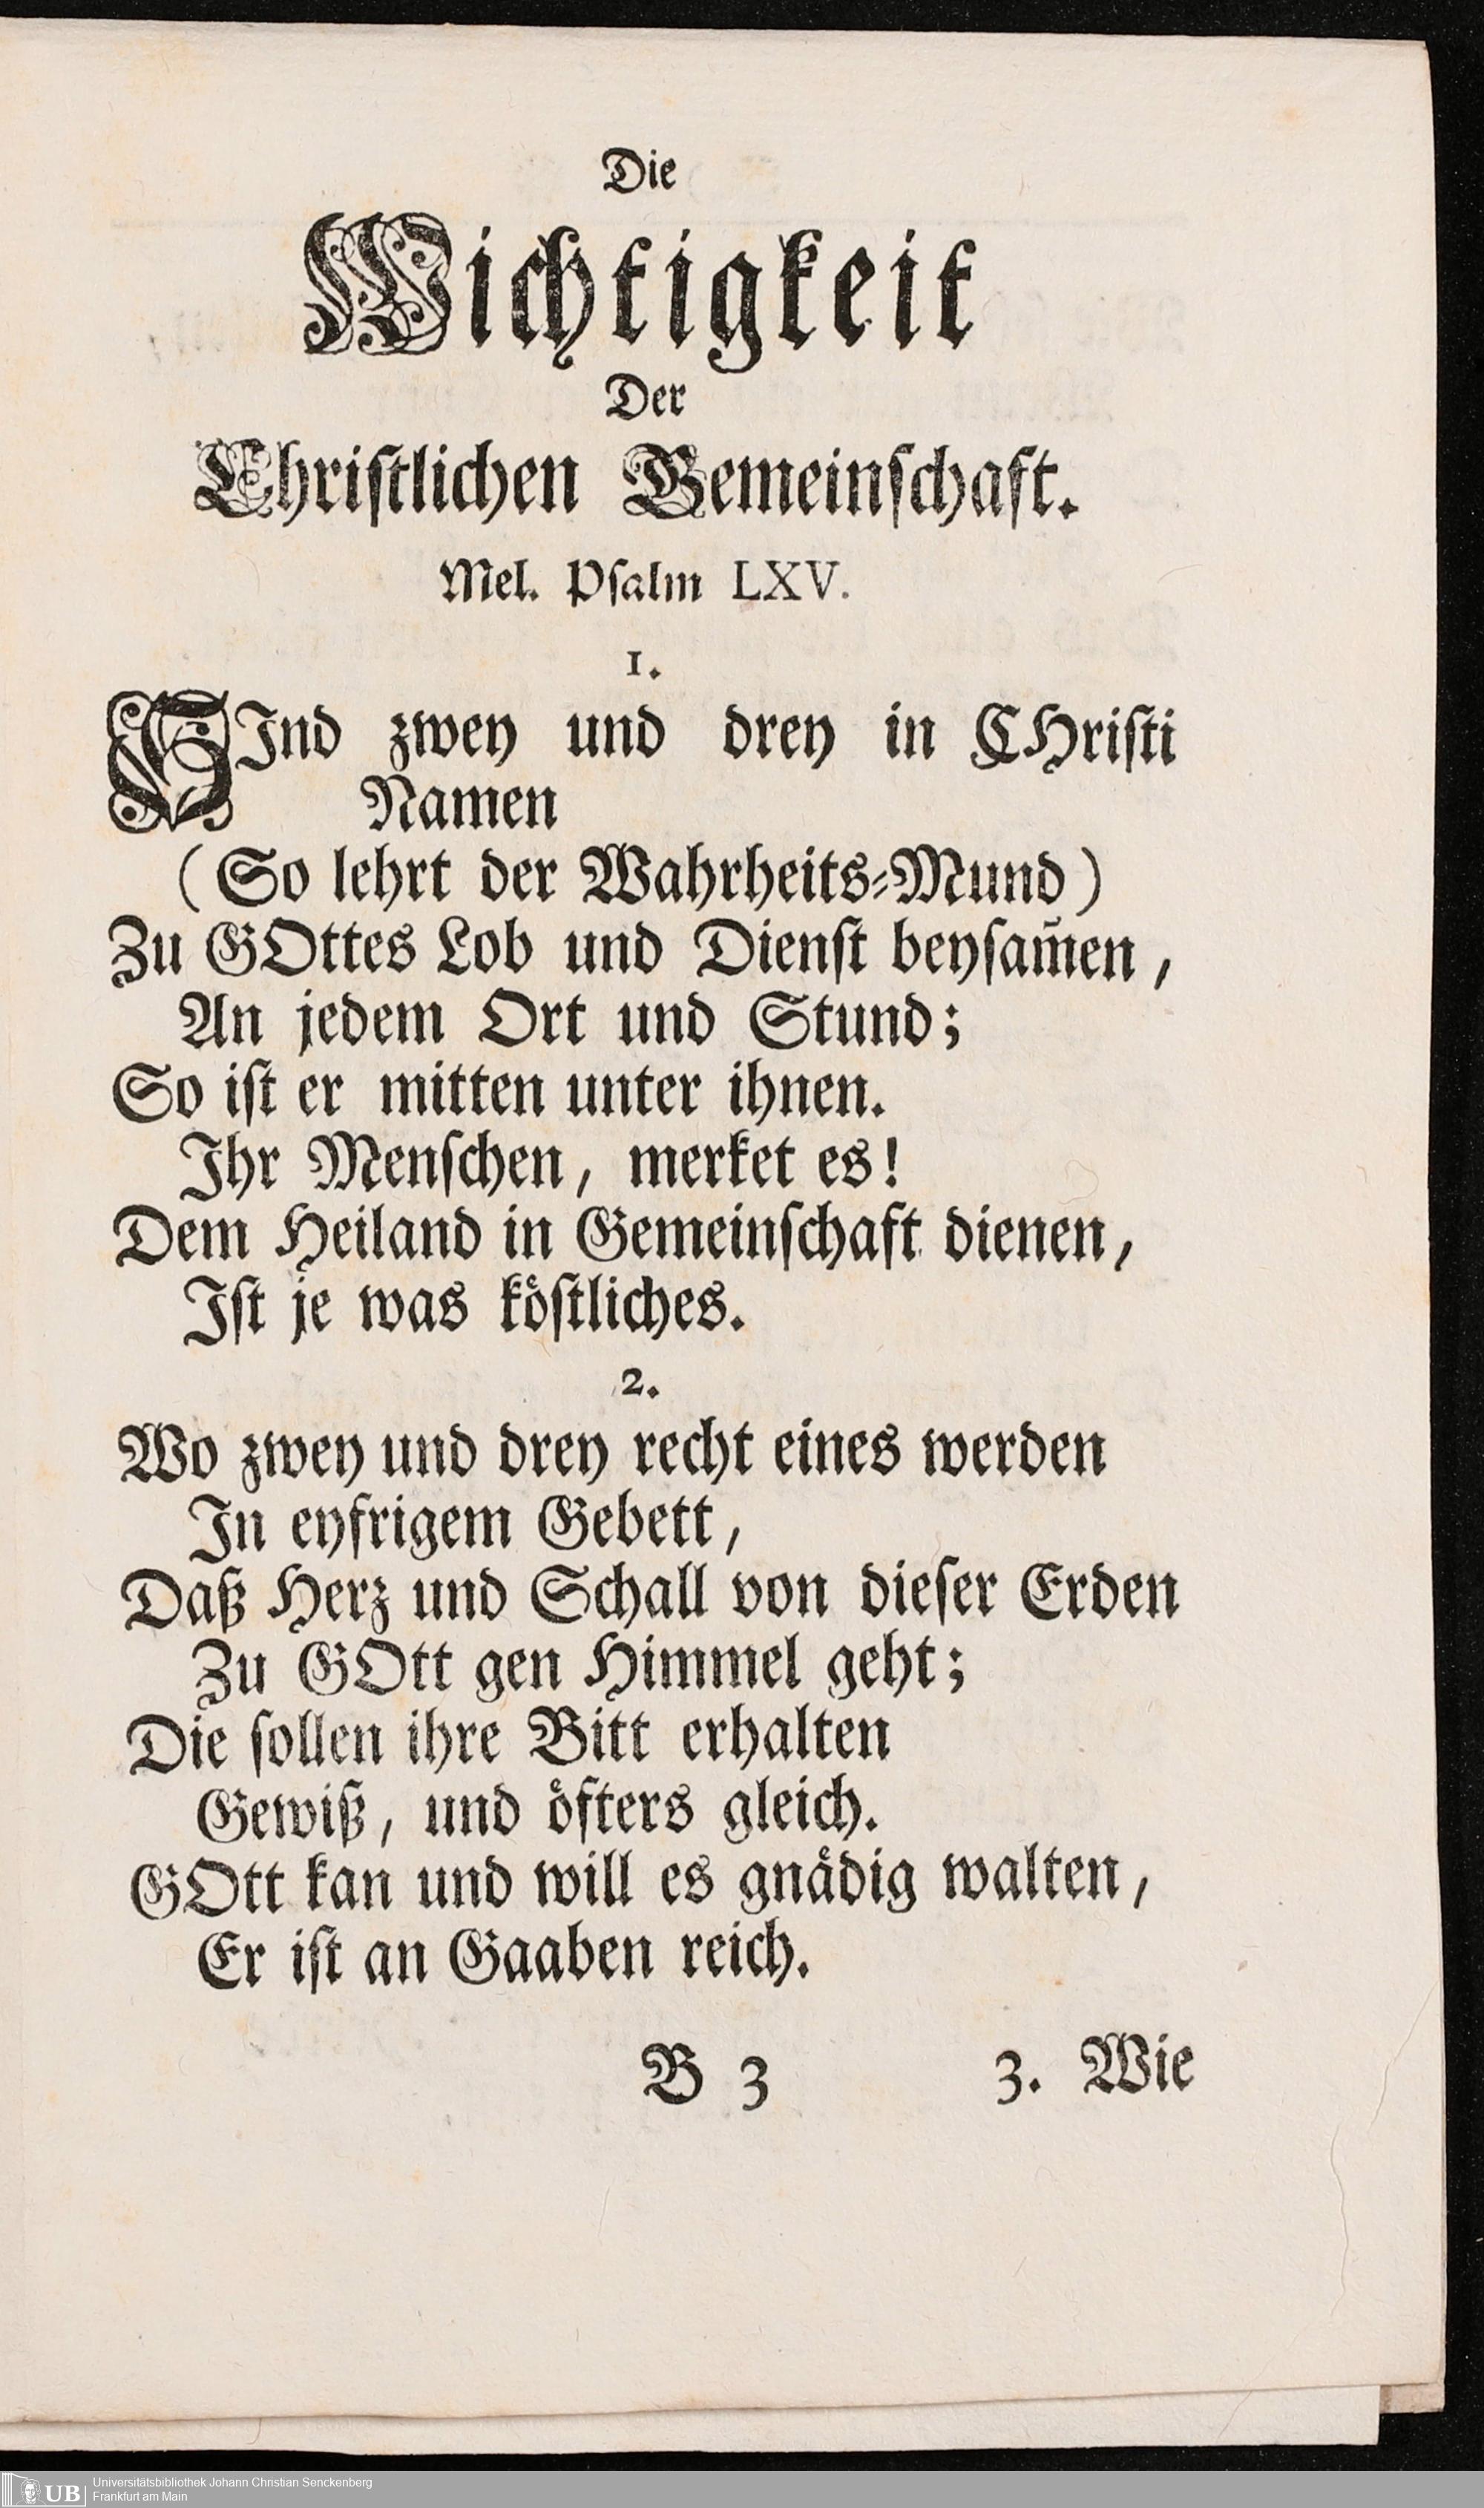 Die
Wichtigkeit
Der
Chriſtlichen Gemeinſchaft.
Mel. Pſalm LXV.
1.
SInd zwey und drey in CHriſti
Namen
(So lehrt der Wahrheits⸗Mund)
Zu GOttes Lob und Dienſt beyſam̄en,
An jedem Ort und Stund;
So iſt er mitten unter ihnen.
Ihr Menſchen, merket es!
Dem Heiland in Gemeinſchaft dienen,
Iſt je was koͤſtliches.
2.
Wo zwey und drey recht eines werden
In eyfrigem Gebett,
Daß Herz und Schall von dieſer Erden
Zu GOtt gen Himmel geht;
Die ſollen ihre Bitt erhalten
Gewiß, und oͤfters gleich.
GOtt kan und will es gnaͤdig walten,
Er iſt an Gaaben reich.
B 3 3. Wie
UB Universitätsbibliothek Johann Christian Senckenberg
Frankfurt am Main